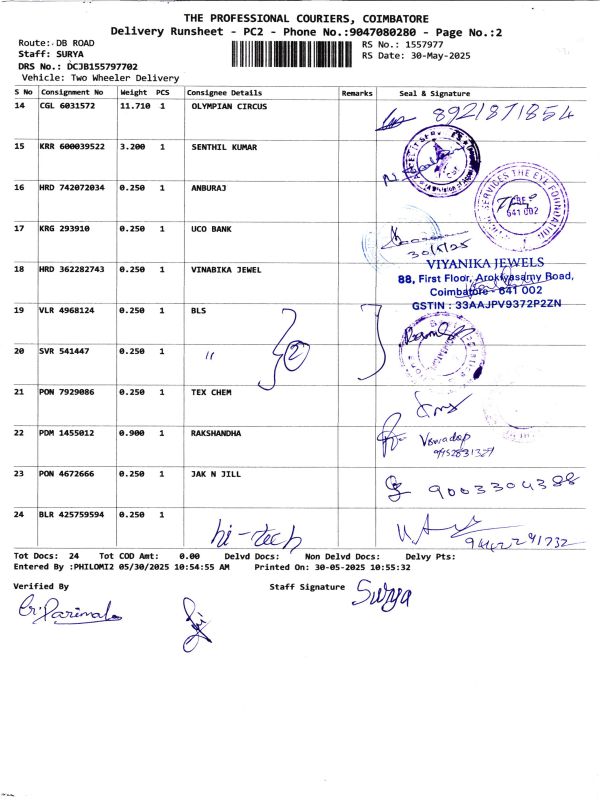 THE PROFESSIONAL COURIERS, COIMBATORE
Delivery Runsheet - PC2 - Phone No.:9047080280 - Page No.:2
Route: DB ROAD
RS No.: 1557977
Staff: SURYA
RS Date: 30-May-2025
DRS No.: DCJB155797702
Vehicle: Two Wheeler Delivery
S No Consignment No Weight PCS Consignee Details Remarks Seal & Signature
14 CGL 6031572 11.710 1 OLYMPIAN CIRCUS
8921871854
15 KRR 600039522 3.200 1 SENTHIL KUMAR
16 HRD 742072034 0.250 1 ANBURAJ
SERVICES THE EYE FOUNDATION
641 002
17 KRG 293910 0.250 1 UCO BANK
30/5/25
18 HRD 362282743 0.250 1 VINABIKA JEWEL
VIYANIKA JEWELS
88, First Floor, Arokiyasamy Road,
Coimbatore - 641 002
GSTIN : 33AAJPV9372P2ZN
19 VLR 4968124 0.250 1 BLS
2
20 SVR 541447 0.250 1 "
21 PON 7929086 0.250 1 TEX CHEM
22 PDM 1455012 0.900 1 RAKSHANDHA
23 PON 4672666 0.250 1 JAK N JILL
9003304388
24 BLR 425759594 0.250 1 hi-tech
Tot Docs: 24 Tot COD Amt: 0.00 Delvd Docs: Non Delvd Docs: Delvy Pts:
Entered By :PHILOMI2 05/30/2025 10:54:55 AM Printed On: 30-05-2025 10:55:32
Verified By
Staff Signature Surya